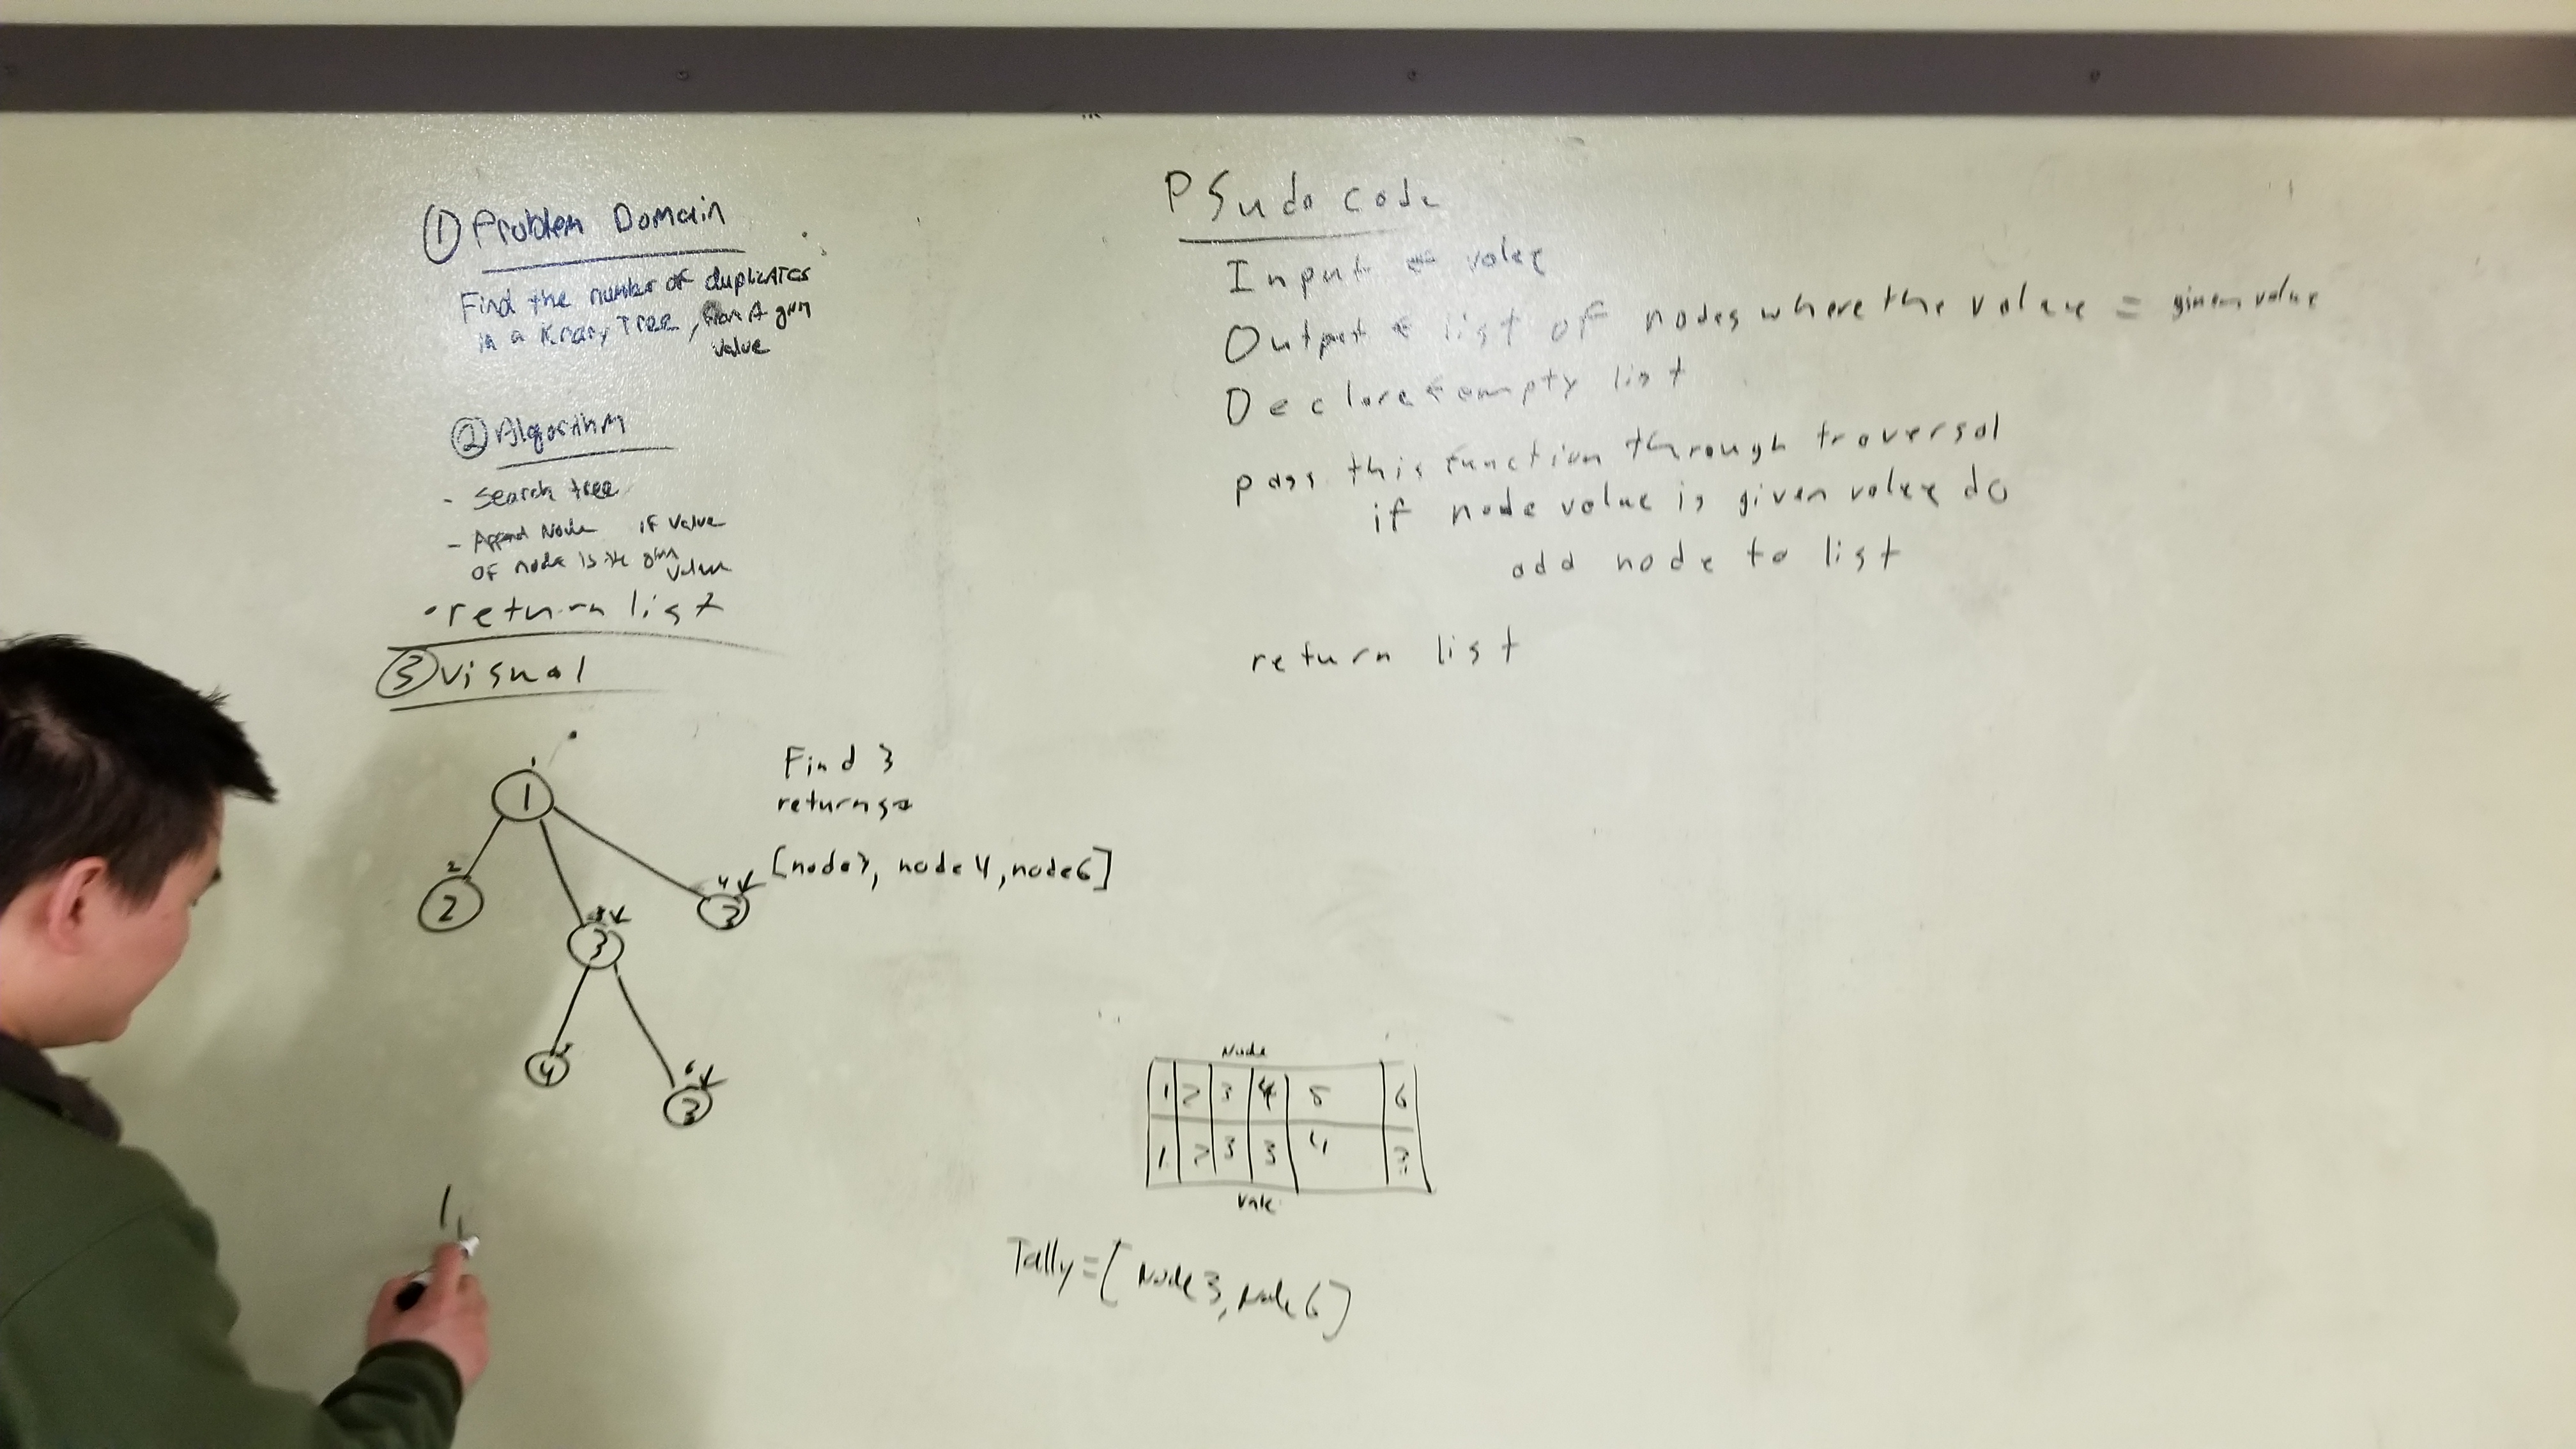 ① Problem Domain
Find the number of duplicates
in a Krary Tree, from A given
value
② Algorithm
- Search tree
- Append Node if value
of node is the given
value
• return list
③ visual
1
2
2
4
3
3
3
4
6
3
Find 3
returns →
[node3, node 4, node6]
PSudo code
Input ← value
Output ← list of nodes where the value = given value
Declare ← empty list
pass this function through traversal
if node value is given value do
add node to list
return list
Node
1 2 3 4 5 6
1 2 3 3 4 3
Value
Tally = [Node 3, Node 6]